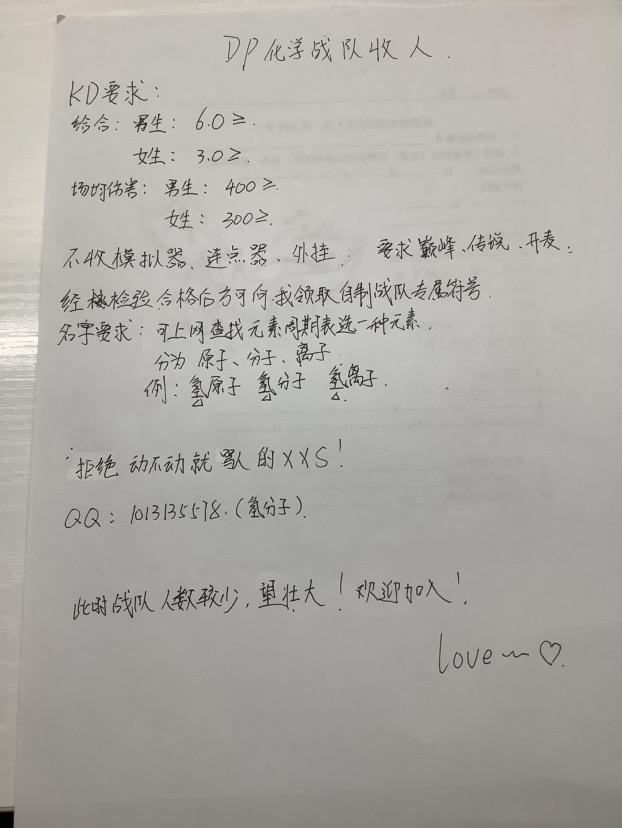 DP化学战队收人.
KD要求:
给合: 男生: 6.0≥.
女生: 3.0≥.
场均伤害: 男生: 400≥.
女生: 300≥.
不收模拟器、连点器、外挂. 要求巅峰、传说、开麦.
经检验合格后方可向我领取自制战队专属符号.
名字要求: 可上网查找元素周期表选一种元素.
分为原子、分子、离子.
例: 氢原子 氢分子 氢离子.
拒绝动不动就骂人的XXS!
QQ: 1013135578.(氢分子).
此时战队人数较少,望壮大!欢迎加入!
Love~♡.